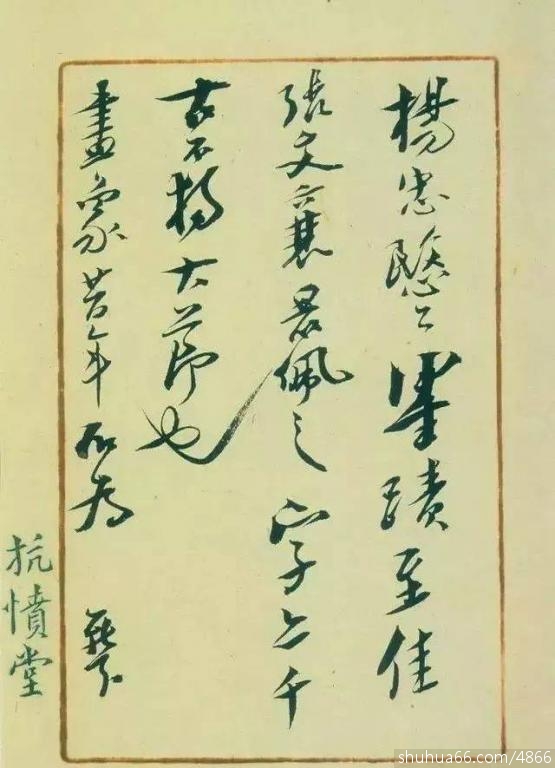 楊忠愍公墨蹟至佳
張文襄最佩之字千
古不大節也
畫象昔年所為
抗憤堂
shuhua66.com/4866